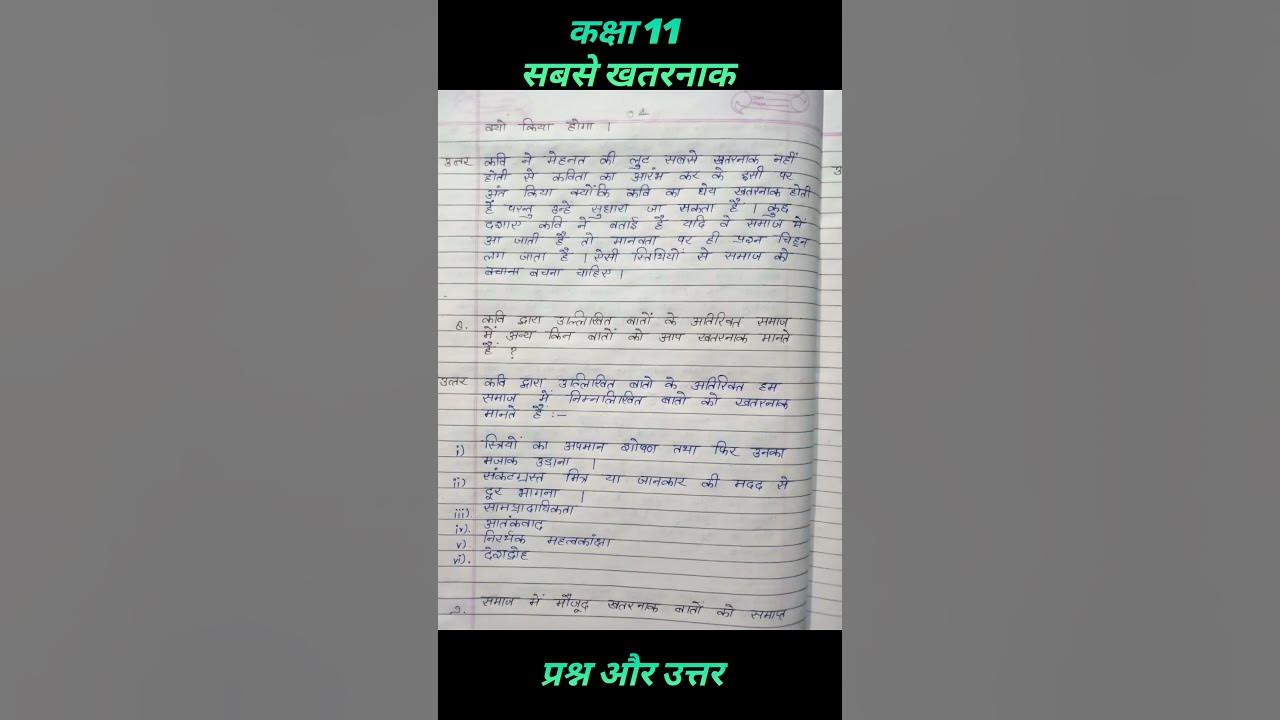 कक्षा 11
सबसे खतरनाक
04
क्यों किया होगा ।
उत्तर कवि ने मेहनत की लुट सबसे खतरनाक नहीं
होती से कविता का आरंभ कर के इसी पर
अंत किया क्योंकि कवि का धेय खतरनाक होती
है परन्तु उन्हें सुधारा जा सकता है । कुछ
दशाए कवि ने बताई है यदि वे समाज में
आ जाती है तो मानवता पर ही प्रश्न चिहन
लग जाता है । ऐसी स्तिथियों से समाज को
बचाना बचना चाहिए ।
6. कवि द्वारा उल्लिखित बातों के अतिरिक्त समाज
में अन्य किन बातों को आप खतरनाक मानते
हैं ?
उत्तर कवि द्वारा उल्लिखित बातो के अतिरिक्त हम
समाज में निम्नलिखित बातो को खतरनाक
मानते हैं :-
i) स्त्रियों का अपमान शोषण तथा फिर उनका
मजाक उडाना ।
ii) संकटग्रस्त मित्र या जानकार की मदद से
दूर भागना ।
iii) सामप्रादायिकता
iv). आतंकवाद
v). निरर्थक महत्वकांक्षा
vi). देशद्रोह
7. समाज में मौजूद खतरनाक बातों को समाप्त
प्रश्न और उत्तर